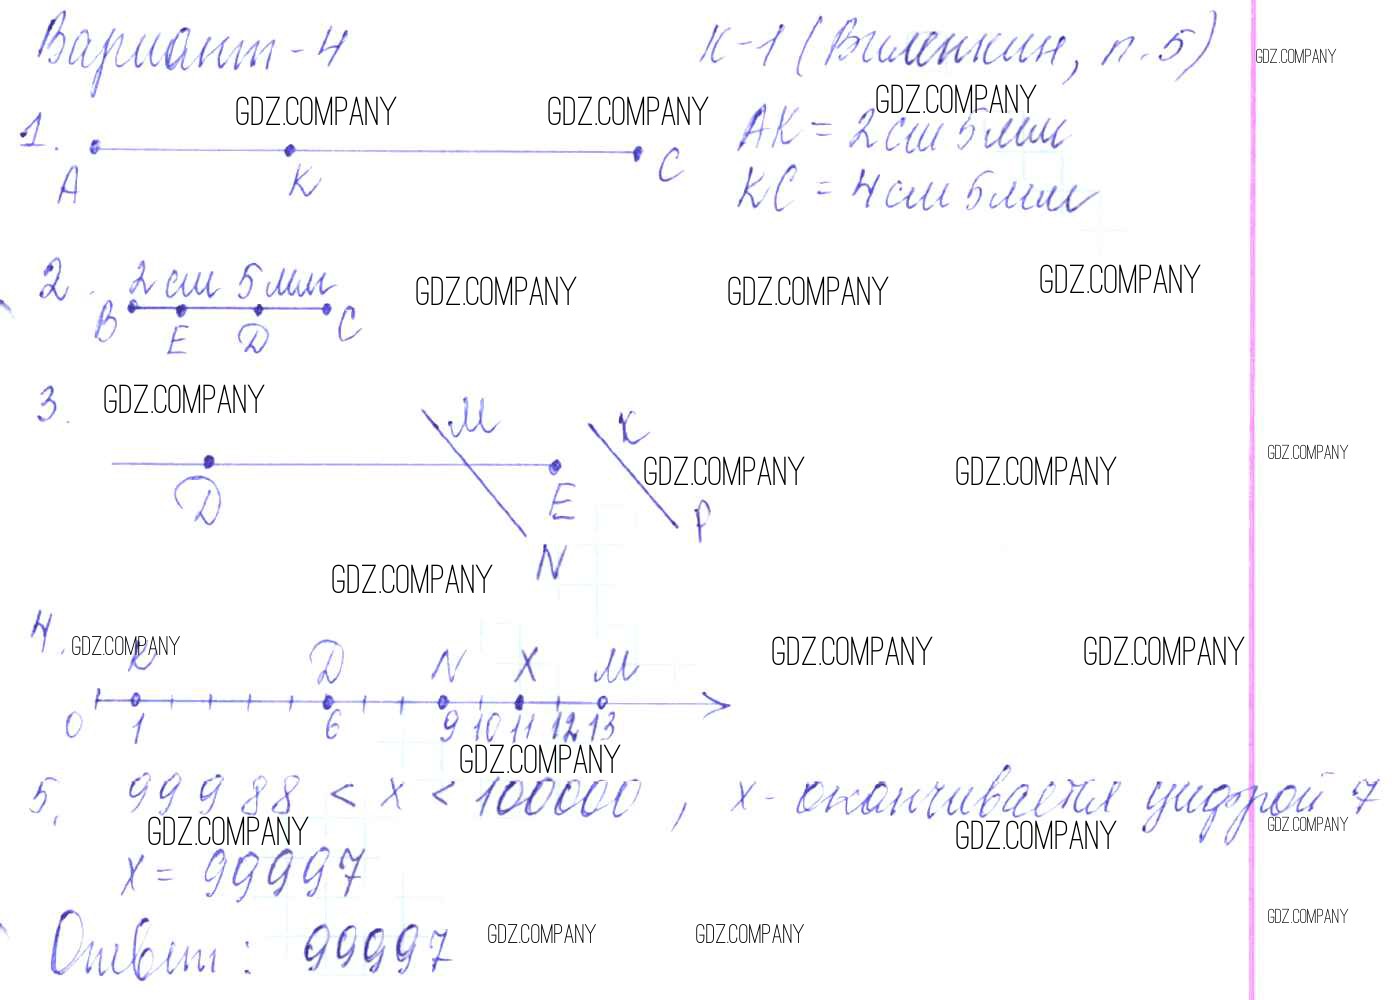 Вариант-4 К-1 (Виленкин, п.5)
GDZ.COMPANY
GDZ.COMPANY GDZ.COMPANY GDZ.COMPANY
1. A K C AK = 2 см 5 мм
KC = 4 см 5 мм
2. 2 см 5 мм
B E D C
GDZ.COMPANY GDZ.COMPANY GDZ.COMPANY
3. GDZ.COMPANY
M K
GDZ.COMPANY GDZ.COMPANY GDZ.COMPANY
D E P
N
GDZ.COMPANY
4. GDZ.COMPANY GDZ.COMPANY GDZ.COMPANY
K D N X M
0 1 6 9 10 11 12 13
GDZ.COMPANY
5. 99988 < x < 100000, x - оканчивается цифрой 7
GDZ.COMPANY GDZ.COMPANY GDZ.COMPANY
x = 99997
GDZ.COMPANY
Ответ: 99997
GDZ.COMPANY GDZ.COMPANY